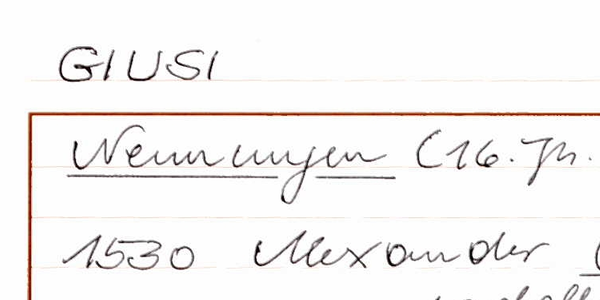 GIUSI
Nennungen (16. Jh.
1530 Alexander